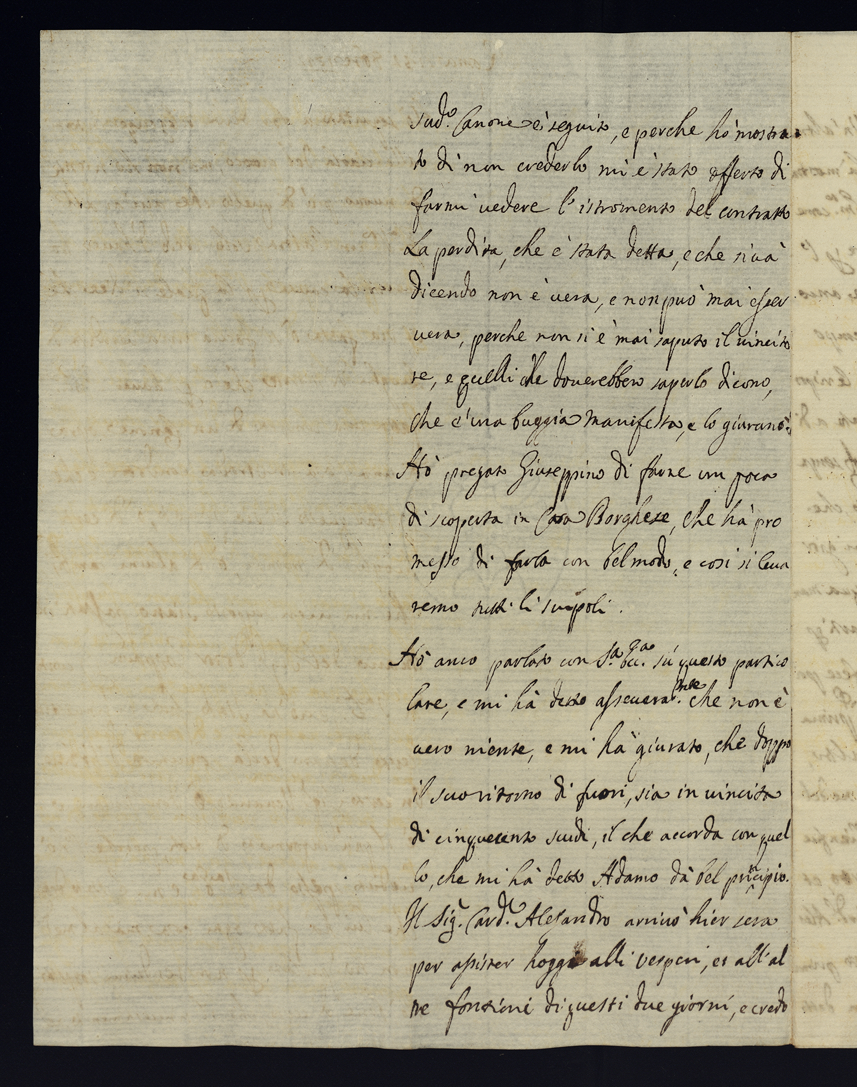 sud.º Canone è seguito, e perche hò mostra=
to di non crederlo mi è stato offerto di
farmi vedere l'istromento del contratto
La perdita, che è stata detta, e che si và
dicendo non è vera, e non può mai esser
vera, perche non si è mai saputo il vincito
re, e quelli che doverebbero saperlo dicono,
che è una buggia manifesta, e lo giurano.
Hò pregato Giuseppino di farne un poca
di scoperta in Casa Borghese, che hà pro
messo di farla con bel modo, e così si leva
remo tutti li scrupoli.
Hò anco parlato con S.ª Ecc.ª sù questo partico
lare, e mi hà detto asseverat.mte che non è
vero niente, e mi hà giurato, che doppo
il suo ritorno di fuori, sia in vincita
di cinquecento scudi, il che accorda con quel
lo, che mi hà detto Adamo dà bel principio.
Il Sig.r Card.le Alesandro arrivò hier sera
per assister hoggi alli vesperi, et all'al
tre fontioni di questi due giorni, e credo